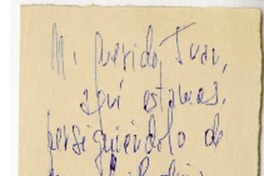 Mi querido Juan,
aquí estamos,
persiguiéndolo de